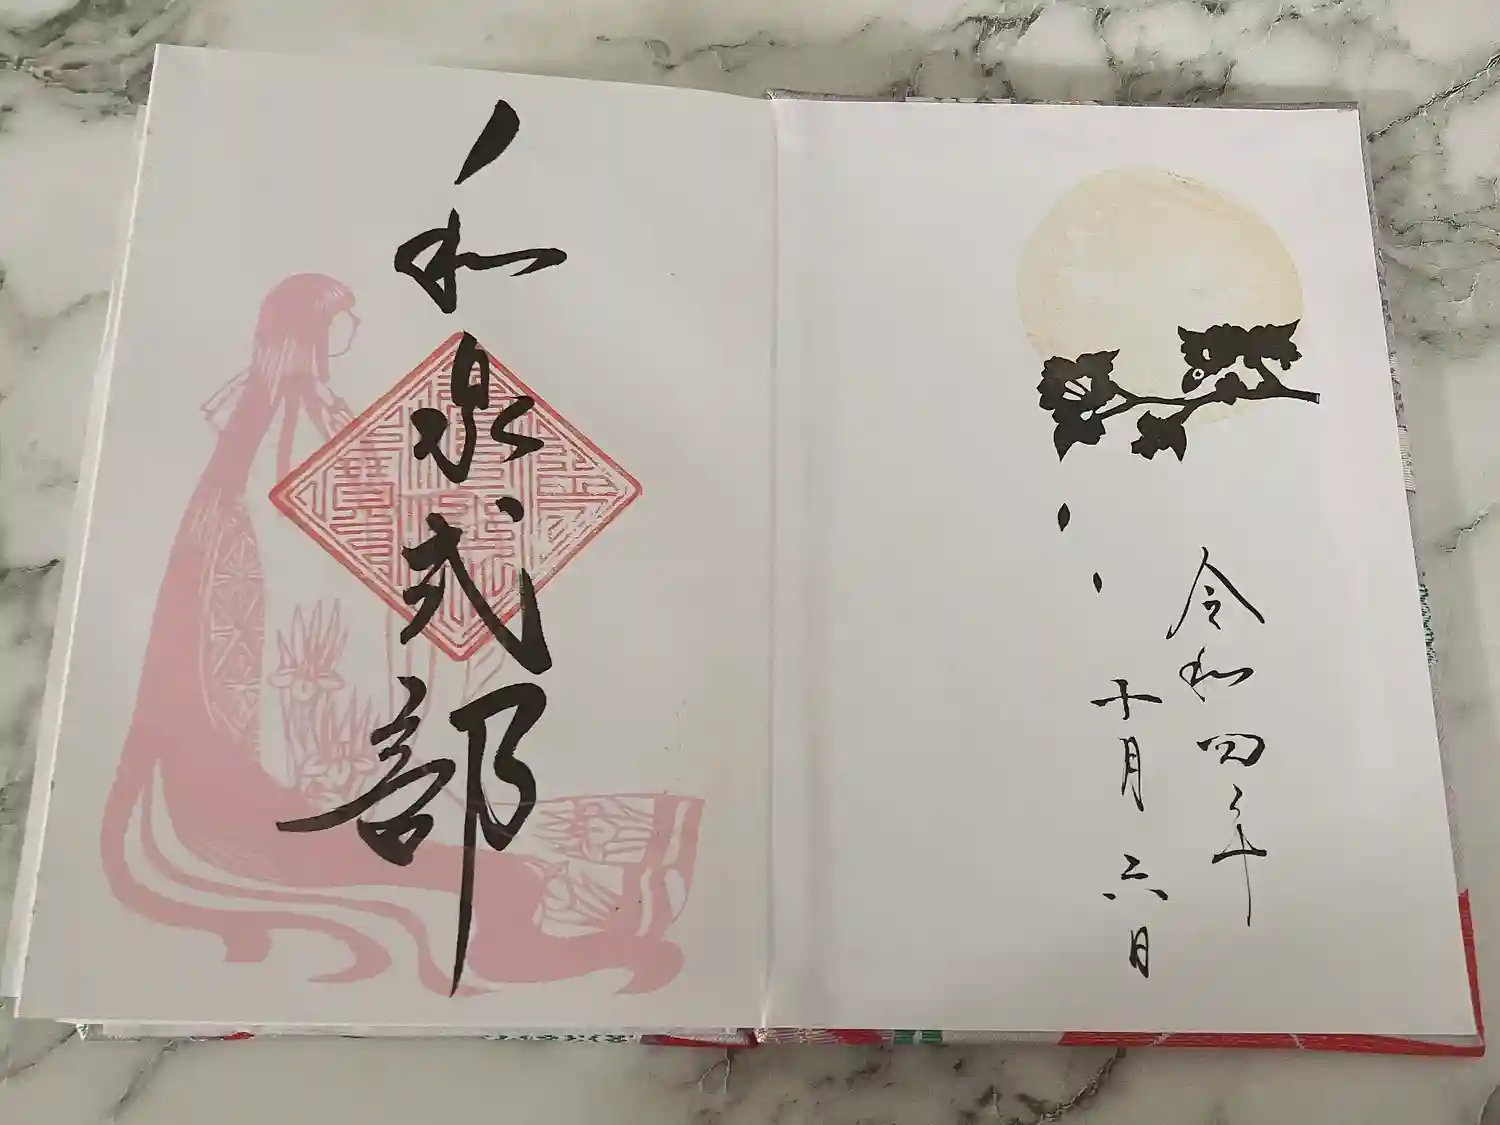 令和四年
十月六日
和泉式部